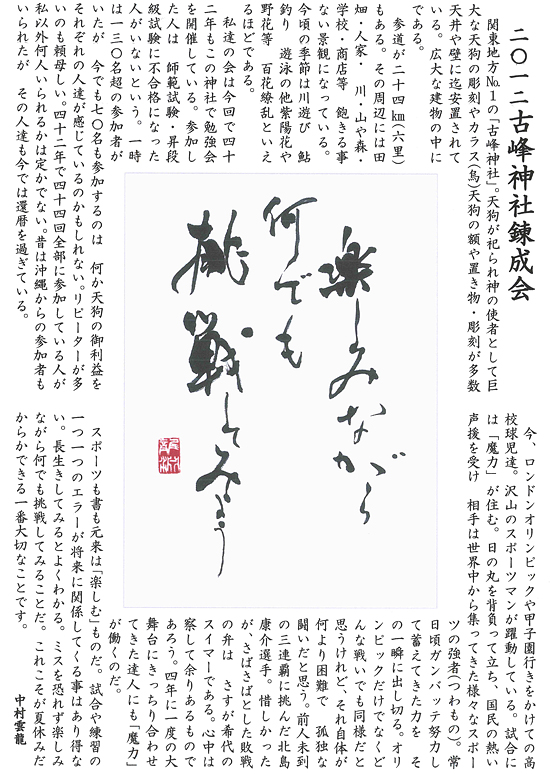 二〇一二古峰神社錬成会
関東地方№1の「古峰神社」。天狗が祀られ神の使者として巨
大な天狗の彫刻やカラス(烏)天狗の額や置き物・彫刻が多数
天井や壁に迄安置されて
いる。広大な建物の中に
である。
参道が二十四㎞(六里)
もある。その周辺には田
畑・人家・川・山や森・
学校・商店等 飽きる事
ない景観になっている。
今頃の季節は川遊び 鮎
釣り 遊泳の他紫陽花や
野花等 百花繚乱といえ
るほどである。
私達の会は今回で四十
二年もこの神社で勉強会
を開催している。参加し
た人は 師範試験・昇段
級試験に不合格になった
人がいないという。一時
は一三〇名超の参加者が
いたが 今でも七〇名も参加するのは 何か天狗の御利益を
それぞれの人達が感じているのかもしれない。リピーターが多
いのも頼母しい。四十二年で四十四回全部に参加している人が
私以外何人いられるかは定かでない。昔は沖縄からの参加者も
いられたが その人達も今では還暦を過ぎている。
楽しみながら
何でも
挑戦してみよう
今、ロンドンオリンピックや甲子園行きをかけての高
校球児達。沢山のスポーツマンが躍動している。試合に
は「魔力」が住む。日の丸を背負って立ち、国民の熱い
声援を受け 相手は世界中から集ってきた様々なスポー
ツの強者(つわもの)。常
日頃ガンバッテ努力し
て蓄えてきた力を そ
の一瞬に出し切る。オリ
ンピックだけでなくど
んな戦いでも同様だと
思うけれど、それ自体が
何より困難で 孤独な
闘いだと思う。前人未到
の三連覇に挑んだ北島
康介選手。惜しかった
が、さばさばとした敗戦
の弁は さすが希代の
スイマーである。心中は
察して余りあるもので
あろう。四年に一度の大
舞台にきっちり合わせ
てきた達人にも「魔力」
が働くのだ。
スポーツも書も元来は「楽しむ」ものだ。試合や練習の
一つ一つのエラーが将来に関係してくる事はあり得な
い。長生きしてみるとよくわかる。ミスを恐れず楽しみ
ながら何でも挑戦してみることだ。これこそが夏休みだ
からかできる一番大切なことです。
中村雲龍